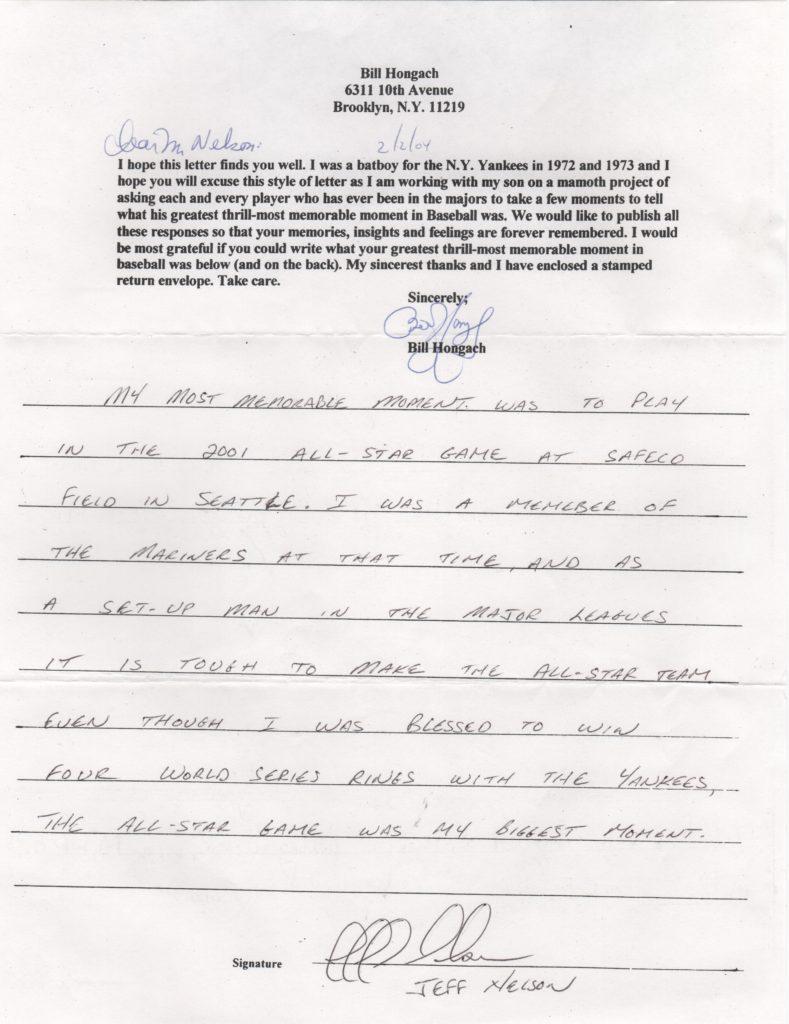 Bill Hongach
6311 10th Avenue
Brooklyn, N.Y. 11219
Dear Mr. Nelson: 2/2/04
I hope this letter finds you well. I was a batboy for the N.Y. Yankees in 1972 and 1973 and I
hope you will excuse this style of letter as I am working with my son on a mamoth project of
asking each and every player who has ever been in the majors to take a few moments to tell
what his greatest thrill-most memorable moment in Baseball was. We would like to publish all
these responses so that your memories, insights and feelings are forever remembered. I would
be most grateful if you could write what your greatest thrill-most memorable moment in
baseball was below (and on the back). My sincerest thanks and I have enclosed a stamped
return envelope. Take care.
Sincerely;
Bill Hongach
MY MOST MEMORABLE MOMENT. WAS TO PLAY
IN THE 2001 ALL-STAR GAME AT SAFECO
FIELD IN SEATTLE. I WAS A MEMEBER OF
THE MARINERS AT THAT TIME, AND AS
A SET-UP MAN IN THE MAJOR LEAGUES
IT IS TOUGH TO MAKE THE ALL-STAR TEAM.
EVEN THOUGH I WAS BLESSED TO WIN
FOUR WORLD SERIES RINGS WITH THE YANKEES,
THE ALL-STAR GAME WAS MY BIGGEST MOMENT.
Signature
JEFF NELSON